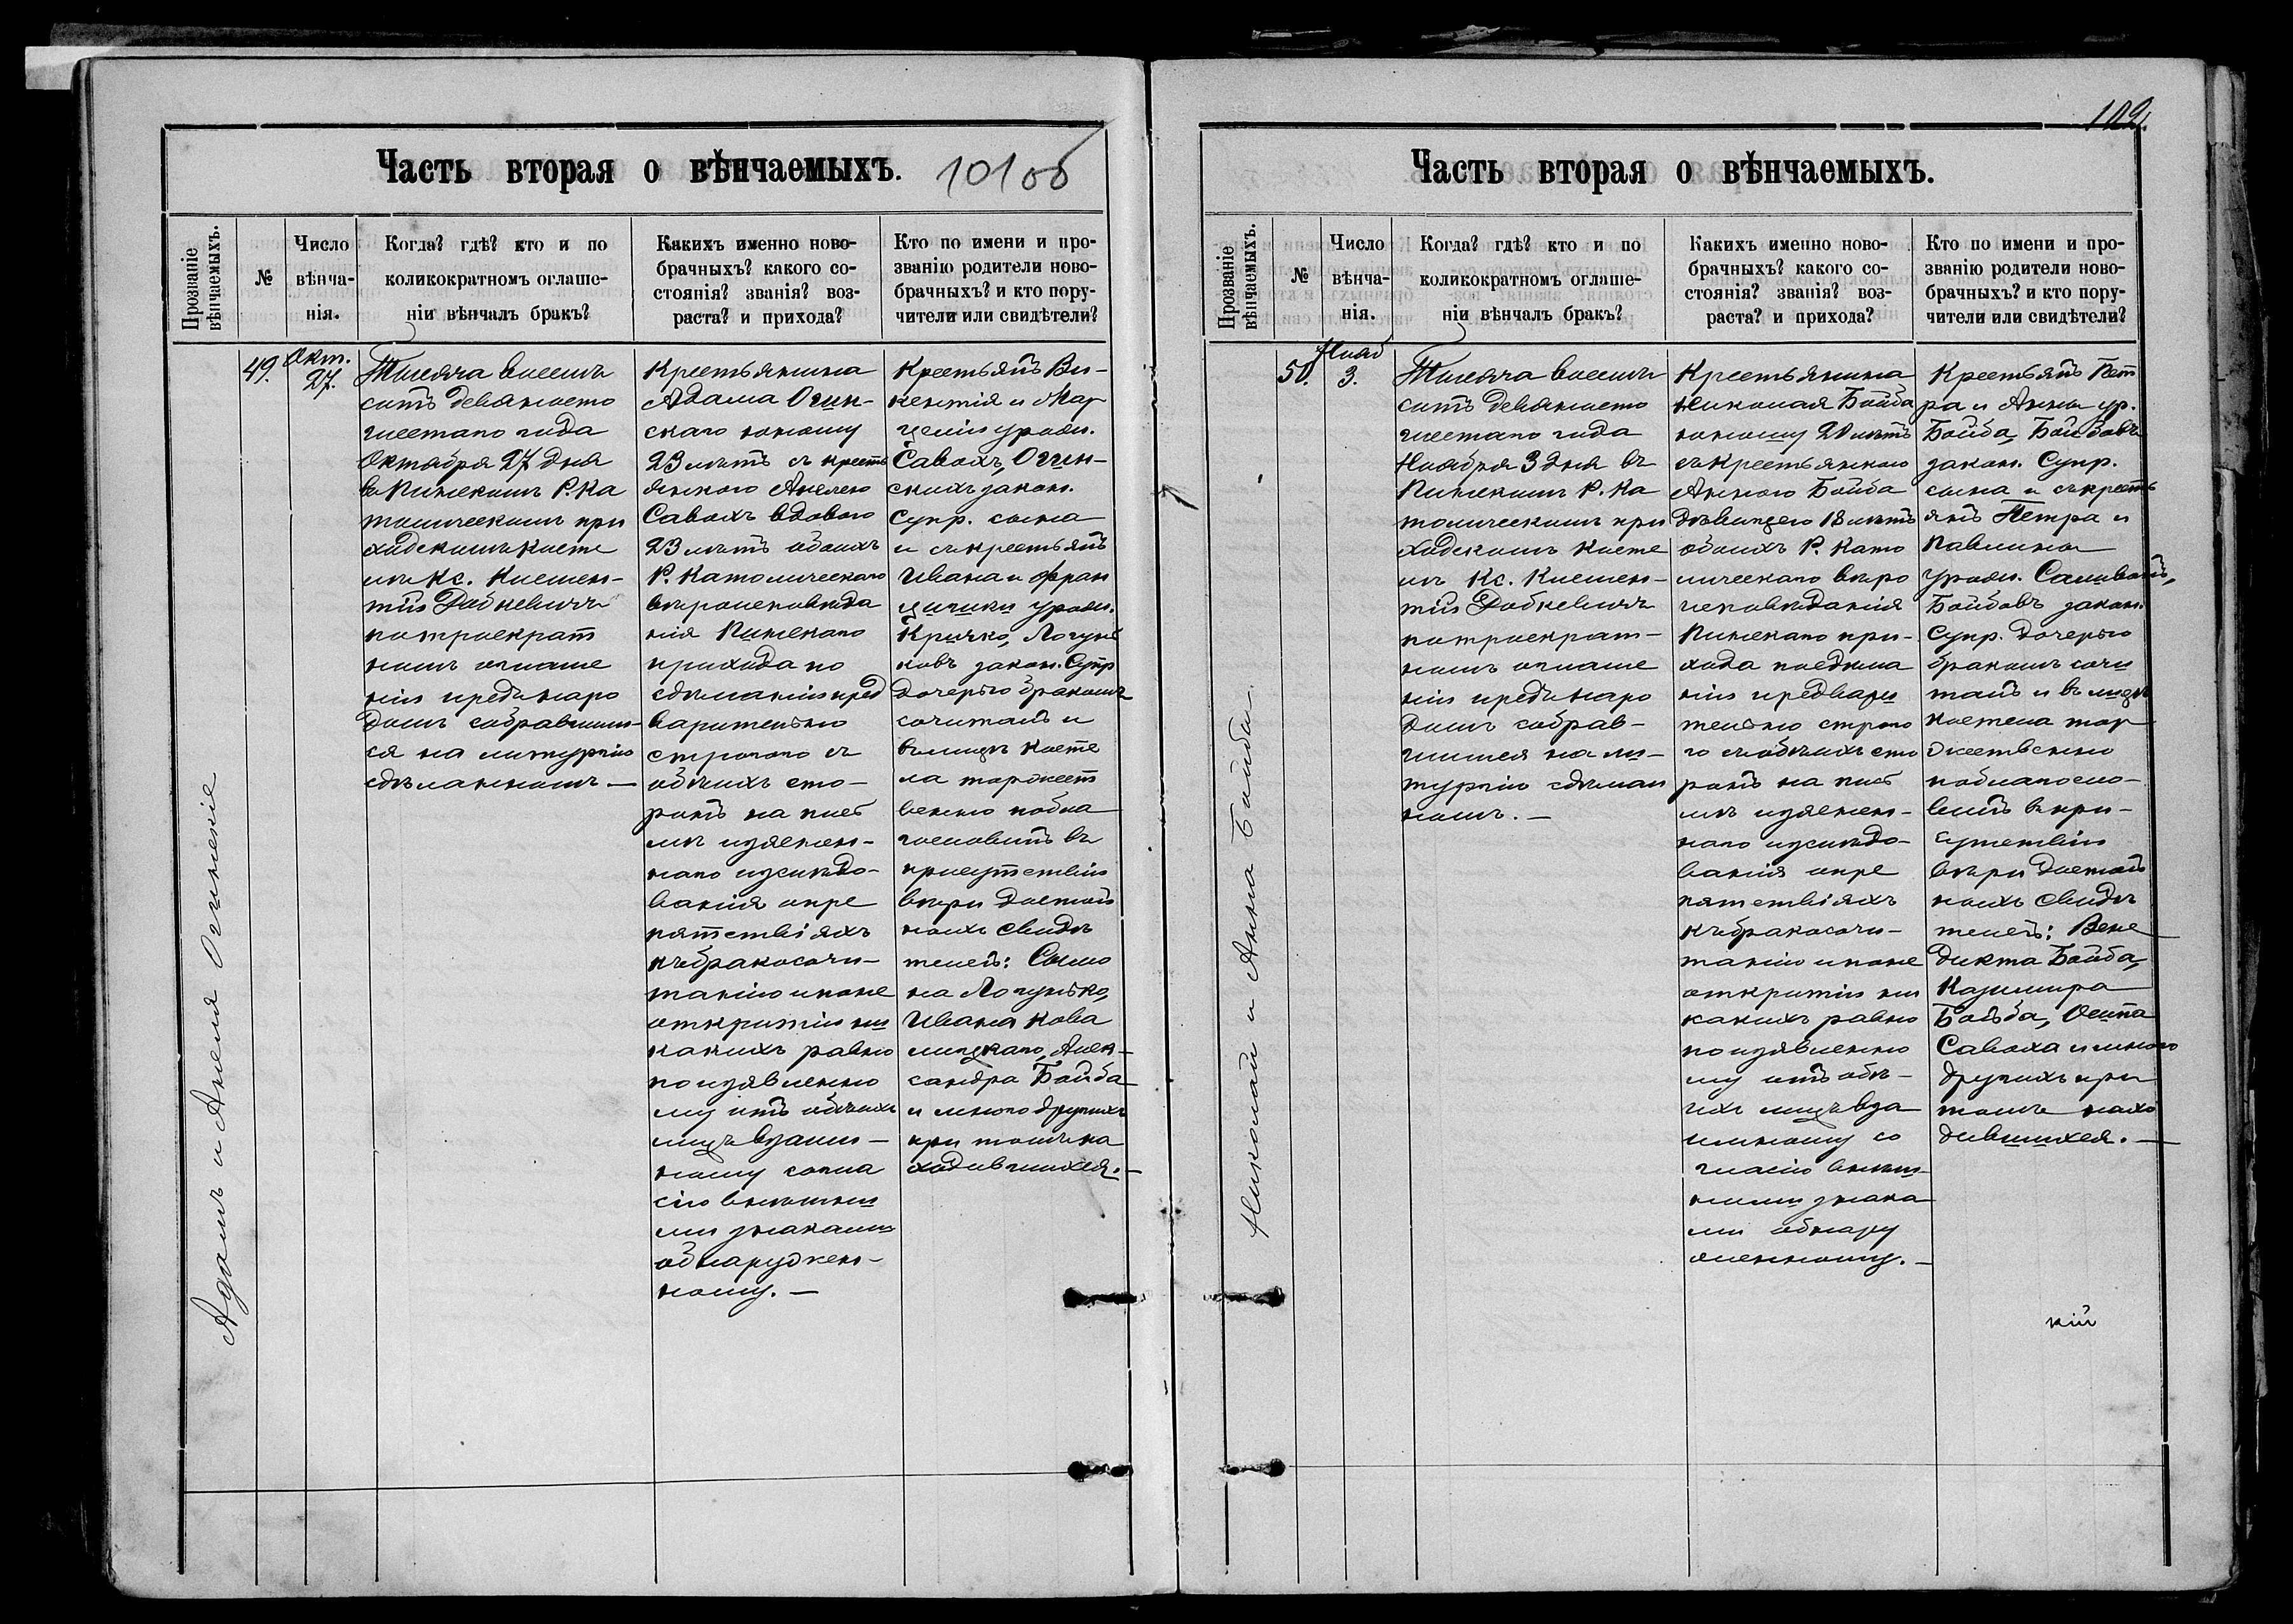 Часть вторая о вѣнчаемыхъ. 101 об
Прозваніе вѣнчаемыхъ.
№
Число вѣнча-нія.
Когда? гдѣ? кто и по
коликократномъ оглаше-
ніи вѣнчалъ бракъ?
Какихъ именно ново-
брачныхъ? какого со-
стоянія? званія? воз-
раста? и прихода?
Кто по имени и про-
званію родители ново-
брачныхъ? и кто пору-
чители или свидѣтели?
Адамъ и Анеля Огинскіе
49.
Окт.
27.
Тысяча восемь
сотъ девяносто
шестаго года
Октября 27 дня
въ Пинскомъ Р. Ка
толическомъ при
ходскомъ косте
лѣ Кс. Климен-
тій Добкевичъ
по троекрат
номъ оглаше
ніи предъ наро
домъ собравшим-
ся на литургію
сдѣланномъ. —
Крестьянина
Адама Огин-
скаго юношу
23 лѣтъ съ кресть
янкою Анелею
Савохъ вдовою
23 лѣтъ обоихъ
Р. Католическаго
вѣроисповѣда
нія Пинскаго
прихода по
сдѣланіи пред
варительно
строгаго съ
обѣихъ сто-
ронъ на пись
мѣ изъяснен-
наго изслѣдо-
ванія о пре
пятствіяхъ
къ бракосоче-
танію и по не
открытіи ни
какихъ равно
по изъявленно
му отъ обѣихъ
лицъ взаим-
ному согла
сію внѣшни
ми знаками
обнаружен-
ному. —
Крестьянъ Ви-
кентія и Мар
целіи урожд.
Савохъ, Огин-
скихъ закон.
Супр. сына
и съ крестьянъ
Ивана и Фран
цишки урожд.
Кричко, Логунь
ковъ закон. Супр
дочерью бракомъ
сочеталъ и
въ лицѣ косте
ла торжест
венно побла
гословилъ въ
присутствіи
вѣры достой
ныхъ свидѣ
телей: Симо
на Логунько,
Ивана Кова
лицкаго, Алек-
сандра Бойба
и много другихъ
при томъ на
ходившихся. —
102.
Часть вторая о вѣнчаемыхъ.
Прозваніе вѣнчаемыхъ.
№
Число вѣнча-нія.
Когда? гдѣ? кто и по
коликократномъ оглаше-
ніи вѣнчалъ бракъ?
Какихъ именно ново-
брачныхъ? какого со-
стоянія? званія? воз-
раста? и прихода?
Кто по имени и про-
званію родители ново-
брачныхъ? и кто пору-
чители или свидѣтели?
Николай и Анна Бойба
50.
Нояб
3.
Тысяча восемь
сотъ девяносто
шестаго года
Ноября 3 дня въ
Пинскомъ Р. Ка
толическомъ при
ходскомъ косте
лѣ Кс. Климен-
тій Добкевичъ
по троекрат-
номъ оглаше
ніи предъ наро
домъ собрав-
шимся на ли-
тургію сдѣлан
номъ. —
Крестьянина
Николая Бойба
юношу 20 лѣтъ
съ крестьянкою
Анною Бойба
дѣвицею 18 лѣтъ
обоихъ Р. Като
лическаго вѣро
исповѣданія
Пинскаго при-
хода по сдѣла
ніи предвари
тельно строга
го съ обѣихъ сто
ронъ на пись
мѣ изъяснен-
наго изслѣдо-
ванія о пре
пятствіяхъ
къ бракосоче-
танію и по не
открытіи ни
какихъ равно
по изъявленно
му отъ обѣ-
ихъ лицъ вза
имному со
гласію внѣш-
ними знака
ми обнару
женному. —
Крестьянъ Пет
ра и Анны ур.
Бойба, Бойбовъ
закон. Супр.
сына и съ кресть
янъ Петра и
Павлины
урожд.
Бойбовъ закон.
Супр. дочерью
бракомъ соче
талъ и въ лицѣ
костела тор
жественно
поблагосло-
вилъ въ при-
сутствіи
вѣры достой
ныхъ свидѣ
телей: Вене
дикта Бойба,
Казимира
Бойба, Осипа
Савоха и много
другихъ при
томъ нахо
дившихся. —
кій